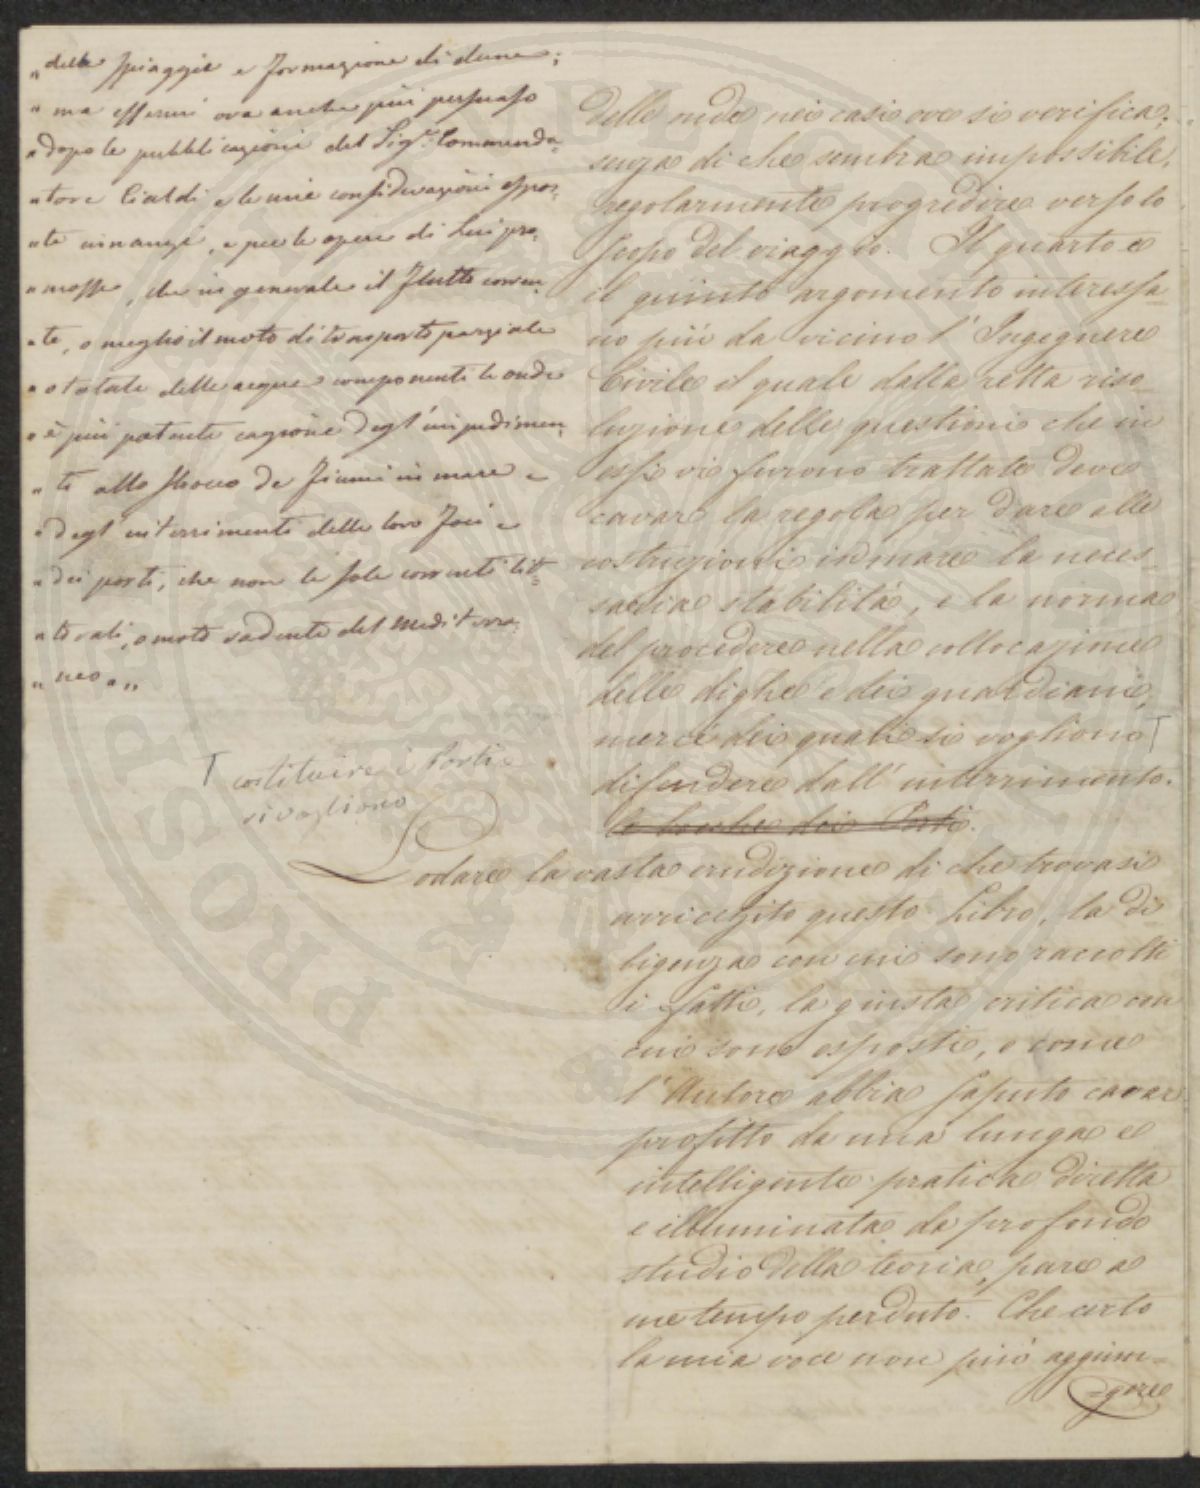 „ delle spiaggie e formazione di dune;
„ ma essermi ora anche più persuaso
„ dopo le pubblicazioni del Sig.r Commenda-
„ tore Cialdi e le mie considerazioni espos-
„ te innanzi, e per le opere di lui pro-
„ mosse, che in generale il flutto corren-
„ te, o meglio il moto di trasporto parziale
„ o totale delle acque componenti le onde
„ è più potente cagione degl'impedimen-
„ ti allo sbocco de fiumi in mare e
„ degl'interrimenti delle loro foci e
„ dei porti, che non le sole correnti lit-
„ torali, o moto radente del Mediterra-
„ neo. „
T costituire i Porti e
si vogliono
delle onde nei casi ove si verifica;
senza di che sembra impossibile,
regolarmente progredire verso lo
scopo del viaggio. Il quarto e
il quinto argomento interessa-
no più da vicino l'Ingegnere
Civile il quale dalla retta riso-
luzione delle questioni che in
essi vi furono trattate deve
cavare la regola per dare alle
costruzioni in mare la neces-
saria stabilità, e la norma
del procedere nella collocazione
delle dighe e dei guardiani,
mercé dei quali si vogliono T
difendere dall'interrimento.
le bocche dei Porti.
Lodare la vasta erudizione di che trovasi
arricchito questo Libro, la di
ligenza con cui sono raccolti
i fatti, la giusta critica con
cui sono esposti, e come
l'Autore abbia saputo cavar
profitto da una lunga e
intelligente pratica diretta
e illuminata da profondo
studio della teoria, pare a
me tempo perduto. Che certo
la mia voce non può aggiun-
=gere
PROPRIETÀ